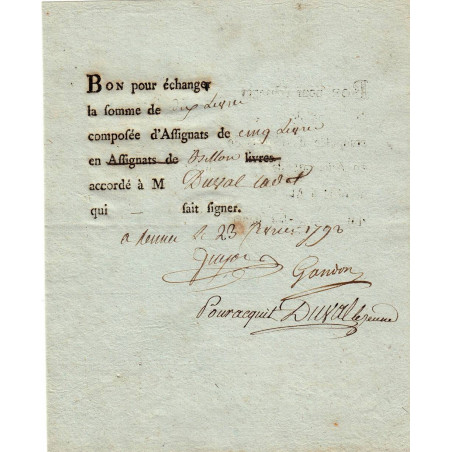 BON pour échanger
la somme de dix Livres
composée d'Assignats de cinq Livres
en Assignats de Billon livres
accordé à M Duval cadet
qui — fait signer.
a le 23 1792
Gandon
Pouracquit DUVAL le jeune